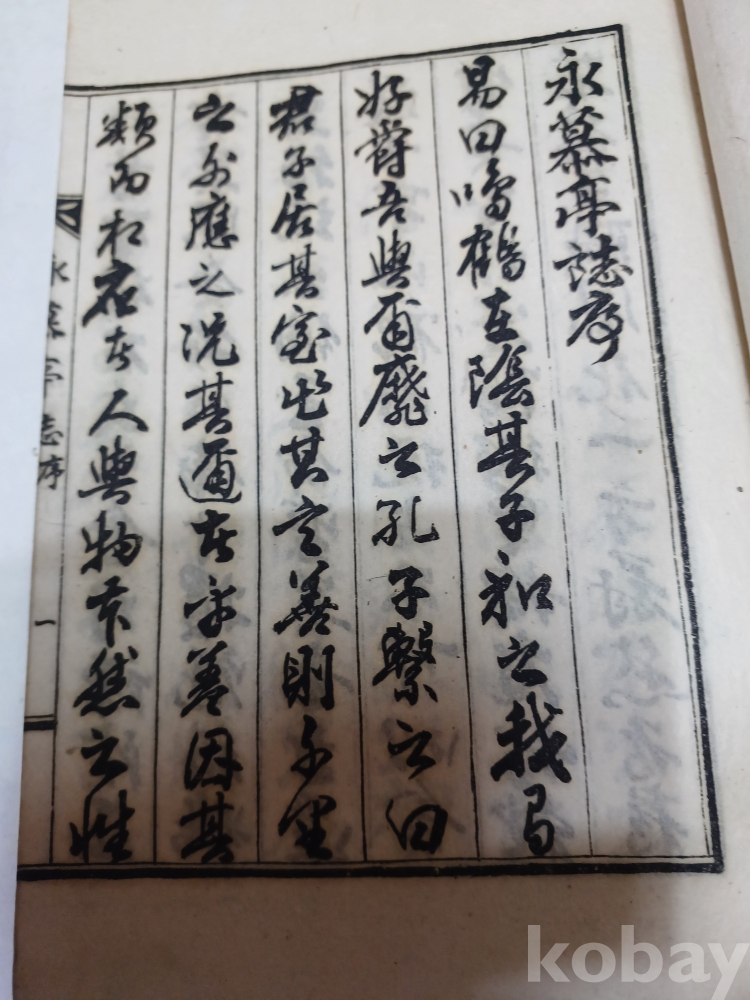 永慕亭誌序
易曰鳴鶴在陰其子和之我有
好爵吾與爾靡之孔子繫之曰
君子居其室出其言善則千里
之外應之況其邇者乎蓋因其
類而相者人與物本然之性
永慕亭志序 一
kobay